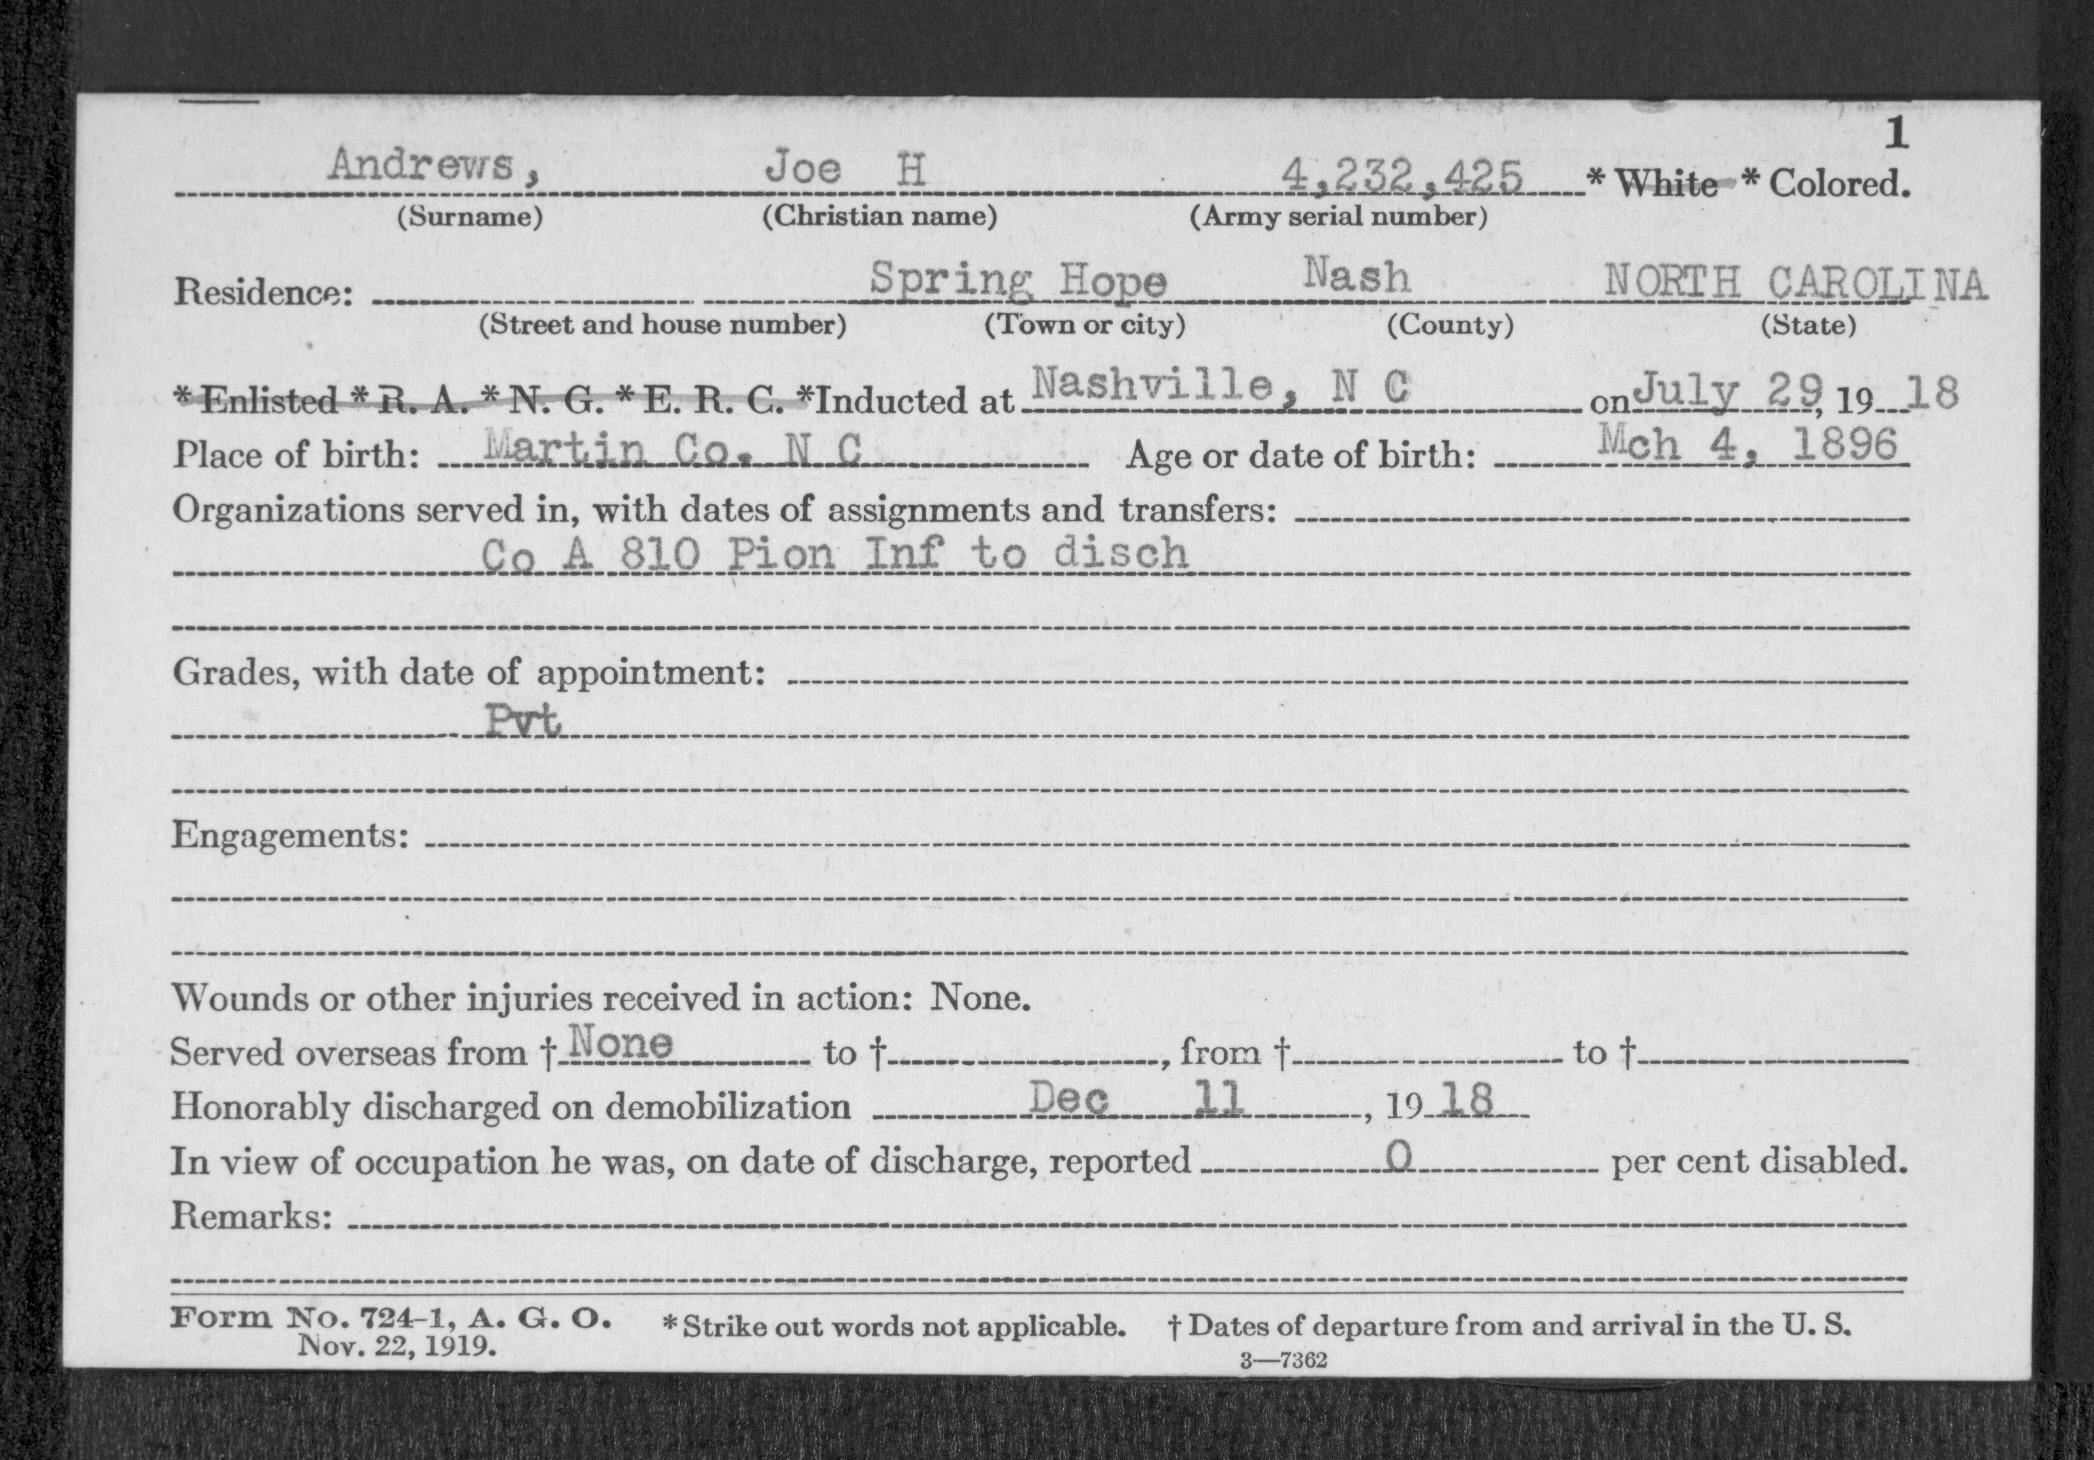 1
Andrews, Joe H 4,232,425 * White * Colored.
(Surname) (Christian name) (Army serial number)
Residence: Spring Hope Nash NORTH CAROLINA
(Street and house number) (Town or city) (County) (State)
* Enlisted * R. A. * N. G. * E. R. C. *Inducted at Nashville, N C on July 29, 19 18
Place of birth: Martin Co. N C Age or date of birth: Mch 4, 1896
Organizations served in, with dates of assignments and transfers:
Co A 810 Pion Inf to disch
Grades, with date of appointment:
Pvt
Engagements:
Wounds or other injuries received in action: None.
Served overseas from † None to †, from † to †
Honorably discharged on demobilization Dec 11, 19 18
In view of occupation he was, on date of discharge, reported 0 per cent disabled.
Remarks:
Form No. 724-1, A. G. O. * Strike out words not applicable. † Dates of departure from and arrival in the U. S.
Nov. 22, 1919.
3—7362